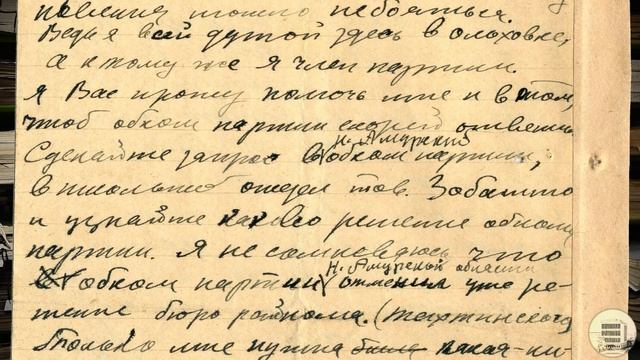 можно не бояться.
Ведь я всей душой здесь в Ольховке,
а к тому же я член партии.
Я Вас прошу помочь мне и в этом,
чтоб обком партии скорей ответил
Сделайте запрос в Н. Амурский обком партии,
в школьный отдел тов.
и узнайте каково решение обкома
партии. Я не сомневаюсь что
обком партии Н. Амурской области отменил уже ре-
шение бюро райкома. (Тахтинского)
Только мне нужна была какая-ни-